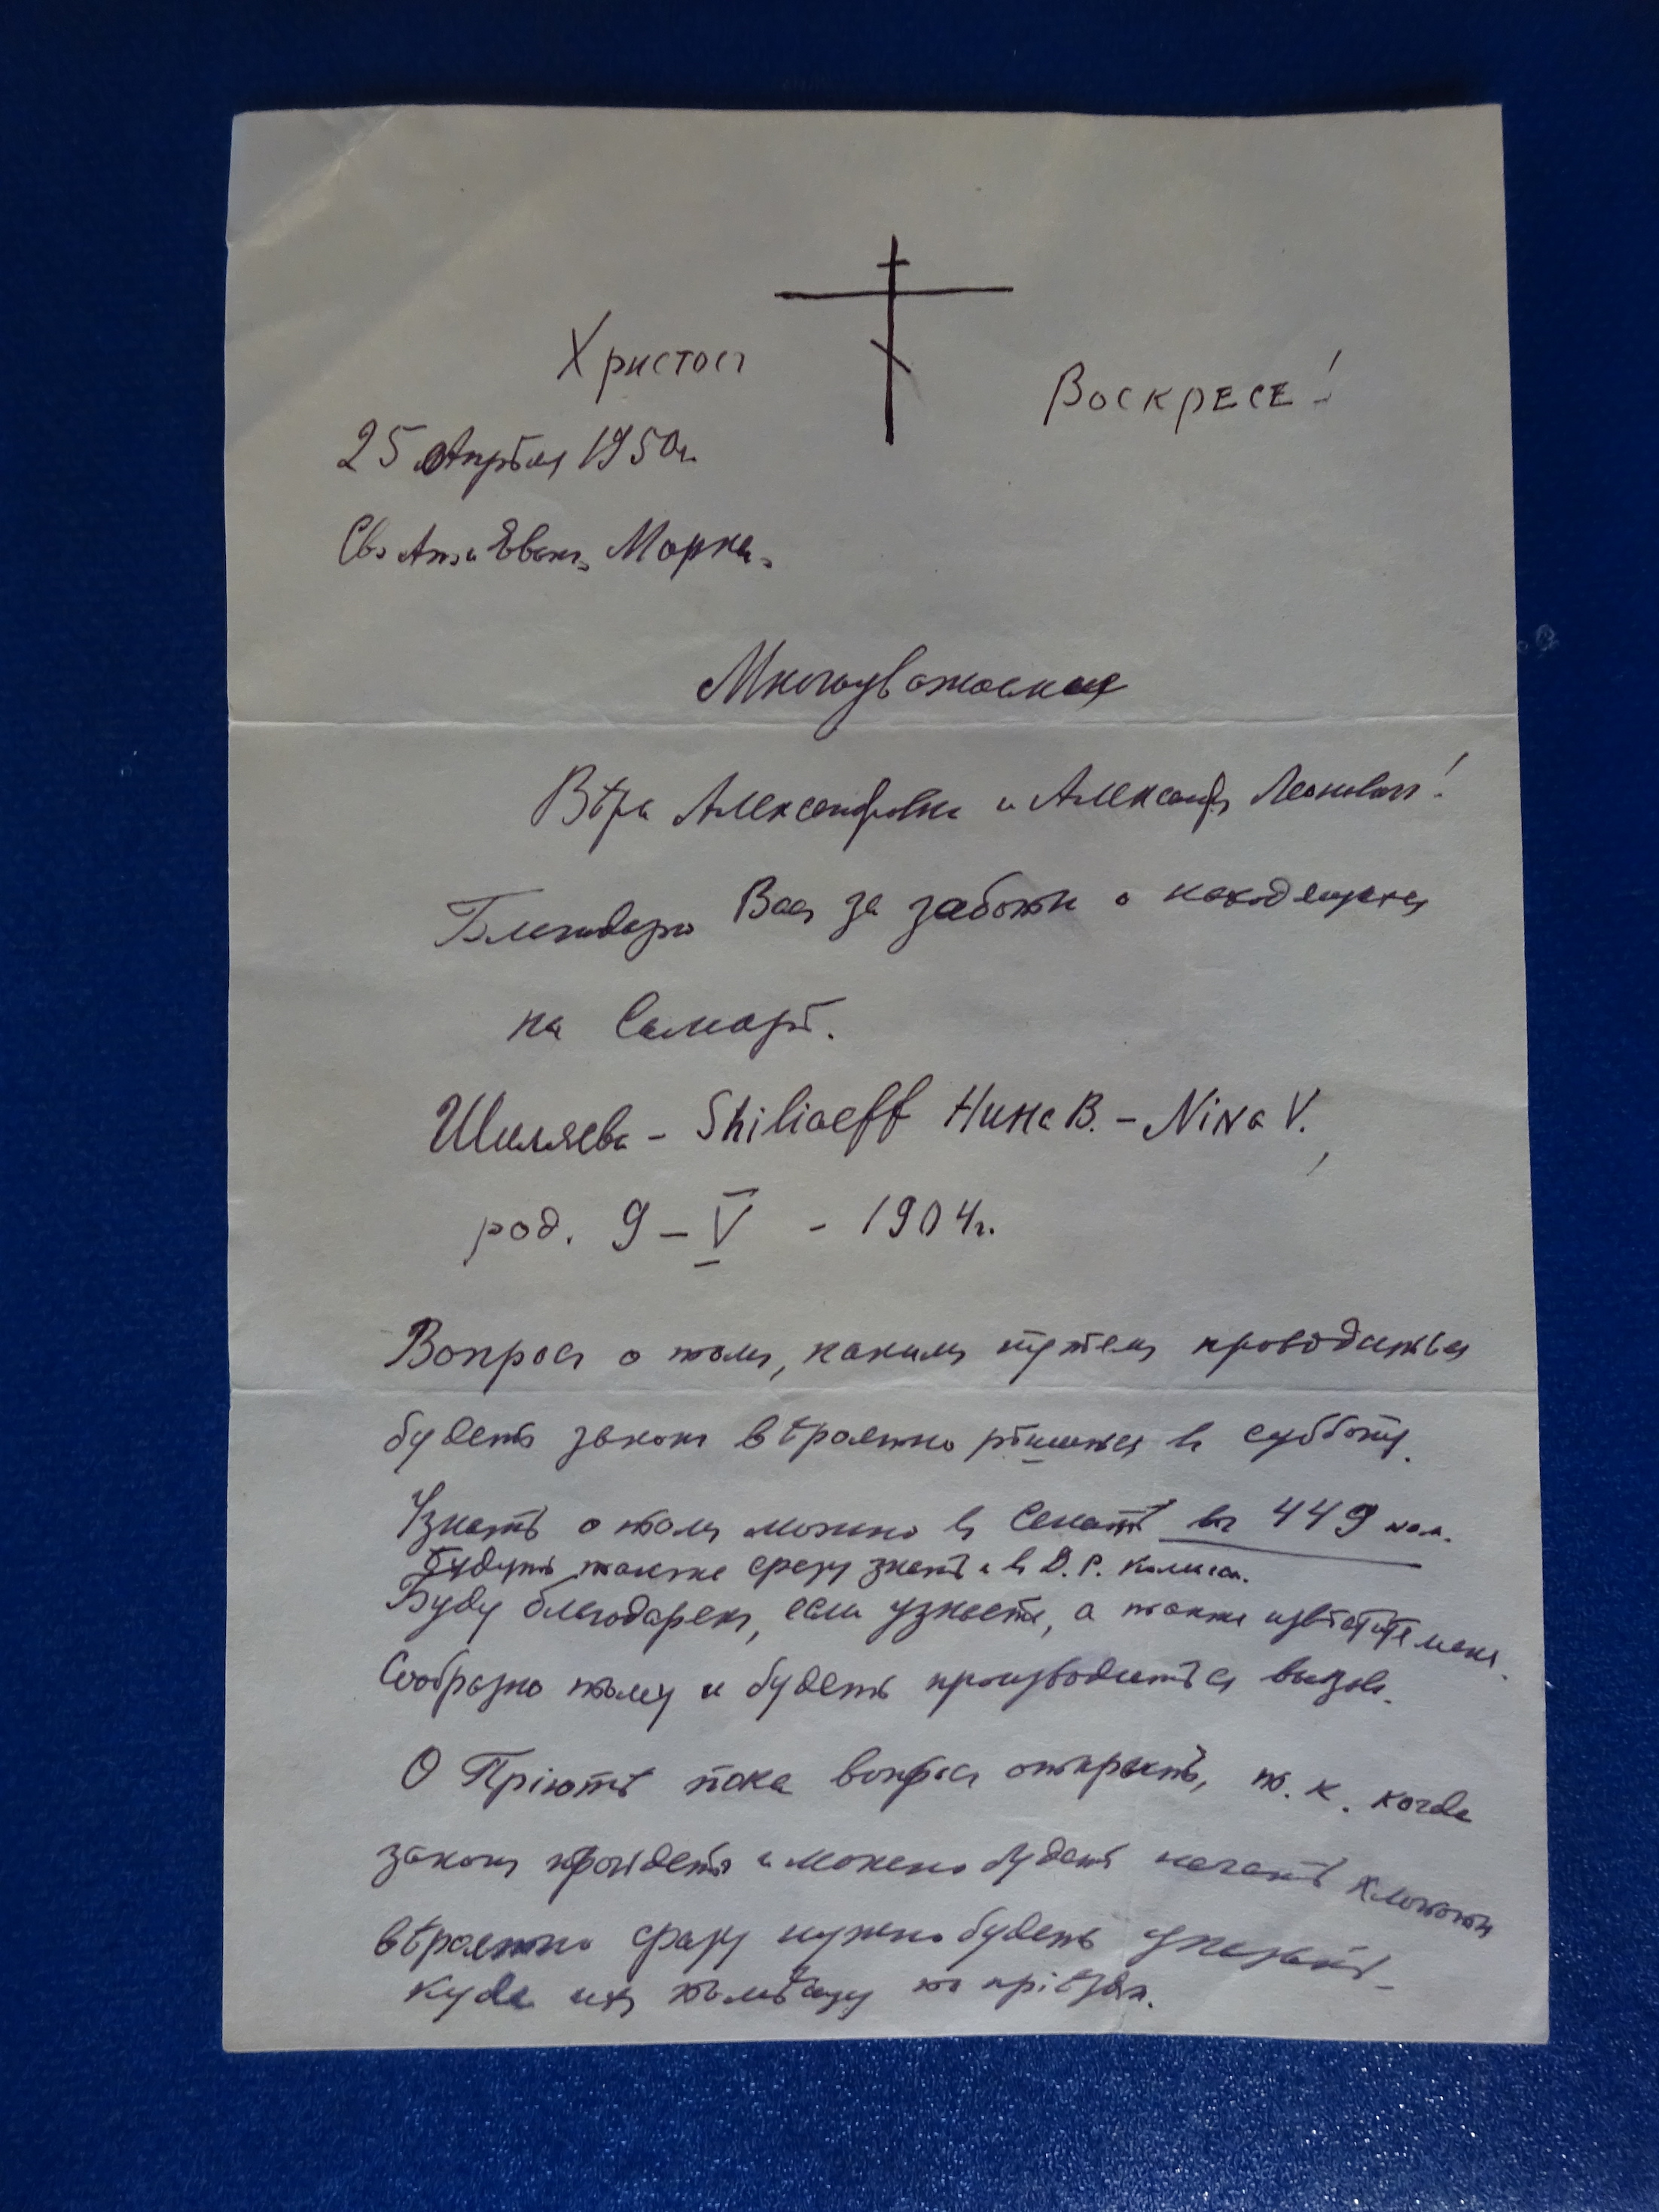 Христосъ Воскресе!
25 Апрѣля 1950г.
Св. Ап. и Еванг. Марка.
Многоуважаемая
Вѣра Александровна и Александръ Леонович!
Благодарю Васъ за заботы о находящихся
на Самарѣ.
Шиляева - Shiliaeff Нина В. - Nina V.,
род. 9 - V - 1904г.
Вопросъ о томъ, какимъ путемъ проводиться
будетъ законъ вѣроятно рѣшится въ субботу.
Узнать о томъ можно въ Сенатѣ въ 449 ком.
Будутъ также сразу знать и въ D. P. Комисіи.
Буду благодаренъ, если узнаете, а также извѣстите меня.
Сообразно тому и будетъ производиться вызовъ.
О Пріютѣ пока вопросъ открытъ, т. к. когда
законъ пройдетъ и можно будетъ начать хлопоты
вѣроятно сразу нужно будетъ указать -
куда ихъ помѣщу по пріѣздѣ.